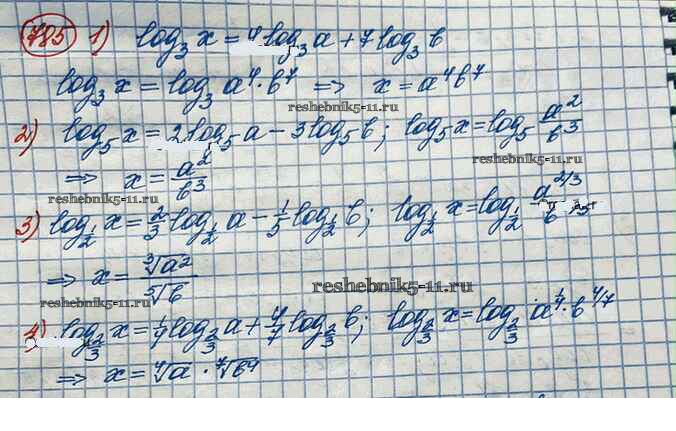 785 1) log₃ x = 4 log₃ a + 7 log₃ b
log₃ x = log₃ a⁴ · b⁷ ⇒ x = a⁴b⁷
reshebnik5-11.ru
2) log₅ x = 2 log₅ a − 3 log₅ b; log₅ x = log₅ a²/b³
reshebnik5-11.ru
⇒ x = a²/b³
reshebnik5-11.ru
3) log_{1/2} x = 2/3 log_{1/2} a − 1/5 log_{1/2} b; log_{1/2} x = log_{1/2} a^{2/3}/b
⇒ x = ∛a²/⁵√b
reshebnik5-11.ru
reshebnik5-11.ru
4) log_{2/3} x = 1/4 log_{2/3} a + 4/7 log_{2/3} b; log_{2/3} x = log_{2/3} a^{1/4} · b^{4/7}
⇒ x = ⁴√a · ⁷√b⁴